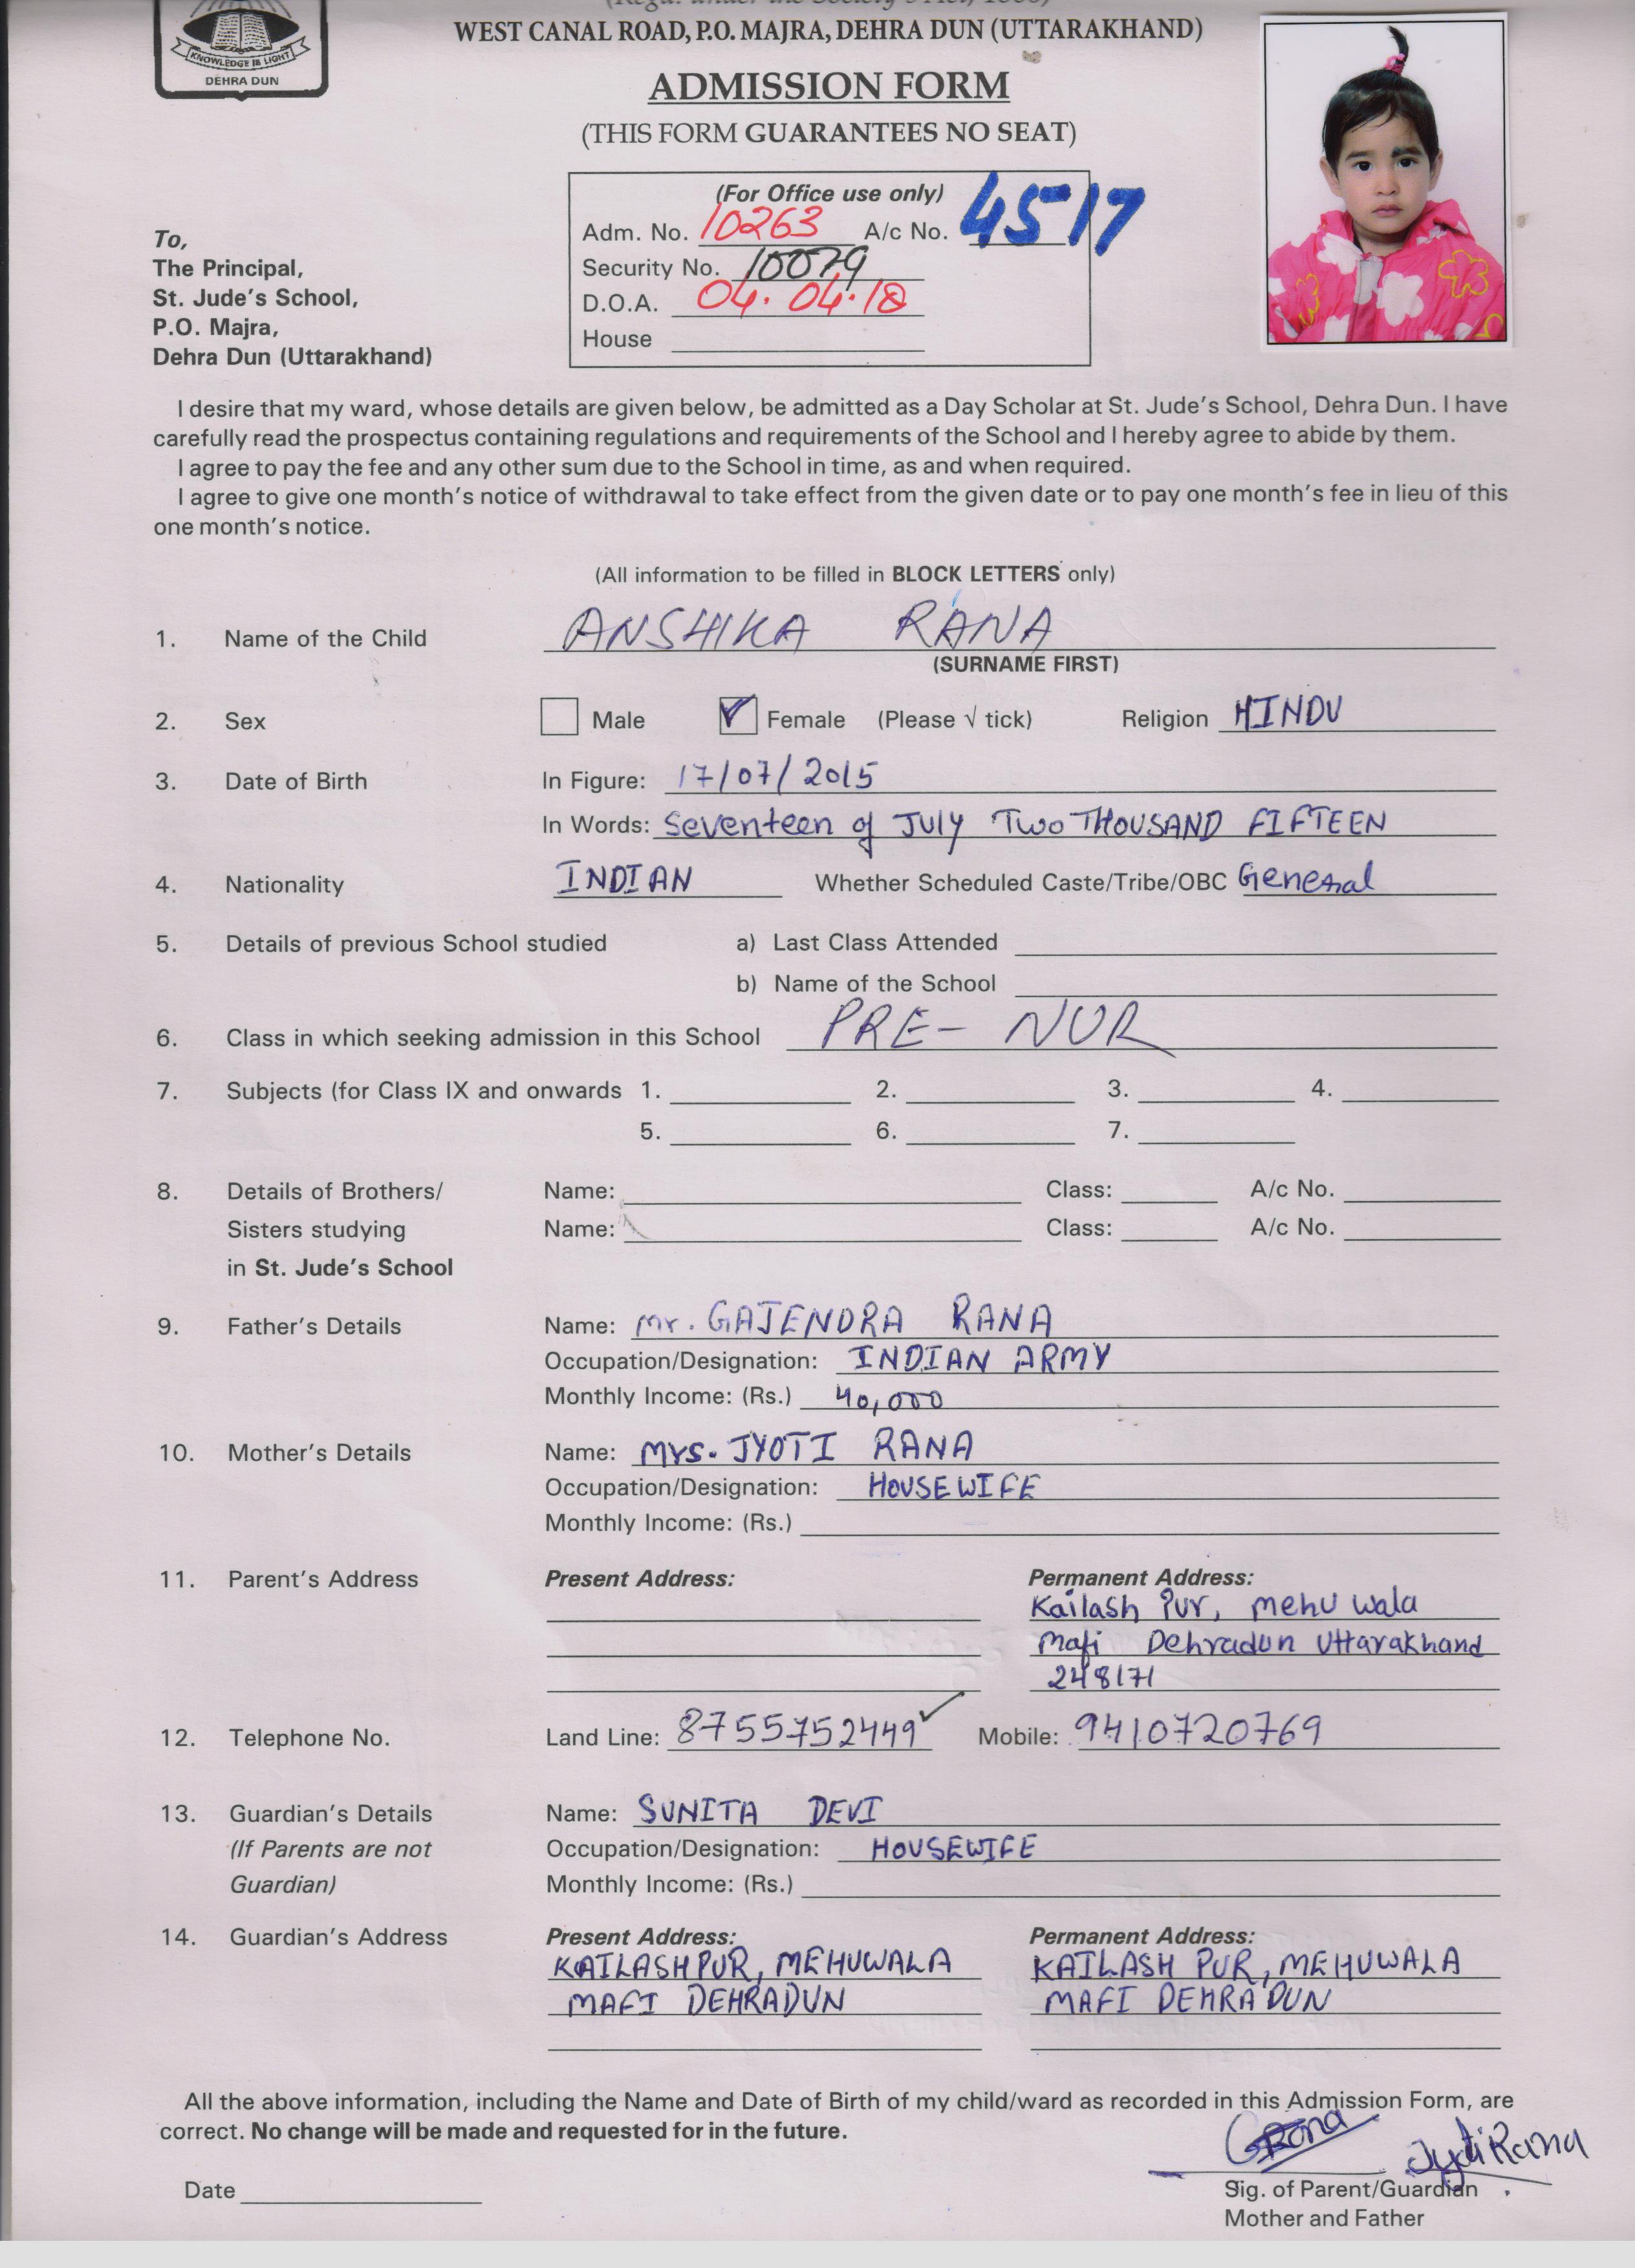 (Regd. under the Society's Act, 1860)
WEST CANAL ROAD, P.O. MAJRA, DEHRA DUN (UTTARAKHAND)
KNOWLEDGE IS LIGHT
DEHRA DUN
ADMISSION FORM
(THIS FORM GUARANTEES NO SEAT)
(For Office use only)
Adm. No. 10263 A/c No. 4517
Security No. 10079
D.O.A. 04.04.18
House
To,
The Principal,
St. Jude's School,
P.O. Majra,
Dehra Dun (Uttarakhand)
I desire that my ward, whose details are given below, be admitted as a Day Scholar at St. Jude's School, Dehra Dun. I have
carefully read the prospectus containing regulations and requirements of the School and I hereby agree to abide by them.
I agree to pay the fee and any other sum due to the School in time, as and when required.
I agree to give one month's notice of withdrawal to take effect from the given date or to pay one month's fee in lieu of this
one month's notice.
(All information to be filled in BLOCK LETTERS only)
1. Name of the Child ANSHIKA RANA
(SURNAME FIRST)
2. Sex Male ✓ Female (Please √ tick) Religion HINDU
3. Date of Birth In Figure: 17/07/2015
In Words: Seventeen of JULY TWO THOUSAND FIFTEEN
4. Nationality INDIAN Whether Scheduled Caste/Tribe/OBC General
5. Details of previous School studied a) Last Class Attended
b) Name of the School
6. Class in which seeking admission in this School PRE- NUR
7. Subjects (for Class IX and onwards 1. 2. 3. 4.
5. 6. 7.
8. Details of Brothers/ Name: Class: A/c No.
Sisters studying Name: Class: A/c No.
in St. Jude's School
9. Father's Details Name: Mr. GAJENDRA RANA
Occupation/Designation: INDIAN ARMY
Monthly Income: (Rs.) 40,000
10. Mother's Details Name: Mrs. JYOTI RANA
Occupation/Designation: HOUSEWIFE
Monthly Income: (Rs.)
11. Parent's Address Present Address: Permanent Address:
Kailash Pur, mehu wala
Mafi Dehradun Uttarakhand
248171
12. Telephone No. Land Line: 8755752449 ✓ Mobile: 9410720769
13. Guardian's Details Name: SUNITA DEVI
(If Parents are not Occupation/Designation: HOUSEWIFE
Guardian) Monthly Income: (Rs.)
14. Guardian's Address Present Address: Permanent Address:
KAILASHPUR, MEHUWALA KAILASH PUR, MEHUWALA
MAFI DEHRADUN MAFI DEHRADUN
All the above information, including the Name and Date of Birth of my child/ward as recorded in this Admission Form, are
correct. No change will be made and requested for in the future.
GRana Jyoti Rana
Date Sig. of Parent/Guardian
Mother and Father